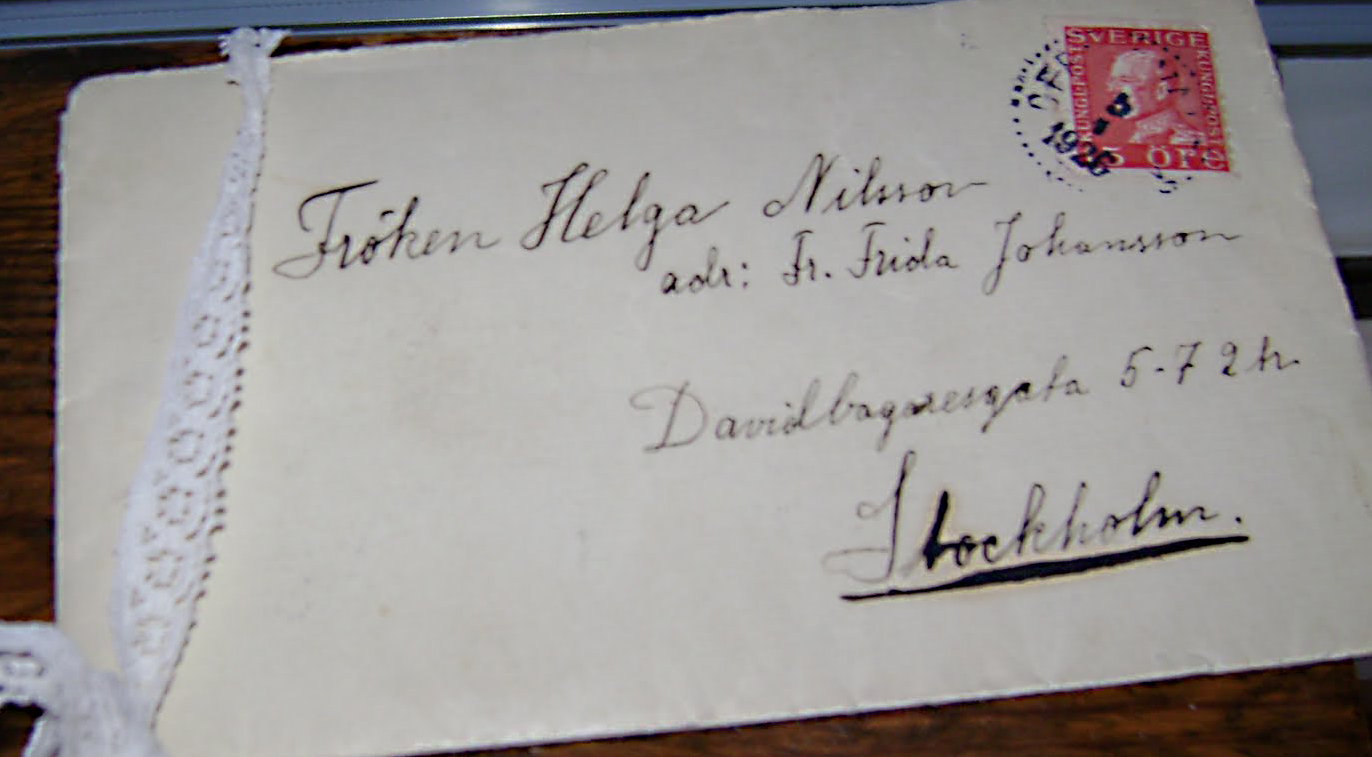 SVERIGE
KUNGL·POST
KUNGL·POST
ÖRE
1926
Fröken Helga Nilsson
adr: Fr. Frida Johansson
Davidbagaresgata 5-7 2 tr
Stockholm.